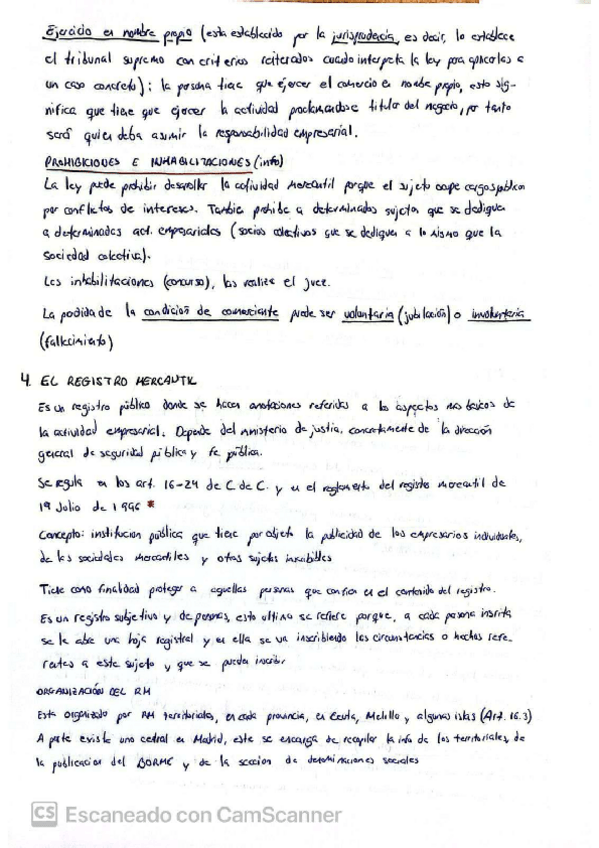 Ejercicio en nombre propio (esta establecido por la jurisprudecia, es decir, lo establece
el tribunal supremo con criterios reiterados cuado interpreta la ley para aplicarlas a
un caso concreto): la persona tiene que ejercer el comercio e nombre propio, esto sig-
nifica que tiene que ejercer la actividad proclamandose titular del negocio, por tanto
será quien deba asumir la responsabilidad empresarial.
PROHIBICIONES E INHABILITACIONES (info)
La ley puede prohibir desarrollar la actividad mercantil porque el sujeto ocupe cargos públicos
por conflictos de intereses. Tambie prohibe a determinados sujetos que se dediquen
a determinadas act. empresariales (socios colectivos que se dediquen a lo mismo que la
sociedad colectiva).
Las inhabilitaciones (concurso), las realiza el juez.
La perdida de la condición de comerciante puede ser voluntaria (jubilación) o involuntaria
(fallecimiento)
4. EL REGISTRO MERCANTIL
Es un registro público donde se hacen anotaciones referidas a los aspectos mas basicos de
la actividad empresarial. Depende del ministerio de justicia, concretamente de la dirección
general de seguridad pública y fe pública.
Se regula en los art. 16-24 de C de C. y en el reglamento del registro mercantil de
19 Julio de 1996 *
Concepto: institucion pública que tiene por objeto la publicidad de los empresarios individuales,
de las sociedades mercantiles y otros sujetos inscribibles
Tiene como finalidad proteger a aquellas personas que confien en el contenido del registro.
Es un registro subjetivo y de personas, esto ultimo se refiere porque, a cada persona inscrita
se le abre una hoja registral y en ella se van inscribiendo las circunstancias o hechos refe-
rentes a este sujeto y que se puedan inscribir
ORGANIZACIÓN DEL RM
Esta organizado por RM territoriales, en cada provincia, en Ceuta, Melilla y algunas islas (Art. 16.3)
A parte existe uno central en Madrid, este se encarga de recopilar la info de los territoriales, de
la publicacion del BORME y de la seccion de denominaciones sociales
CS Escaneado con CamScanner